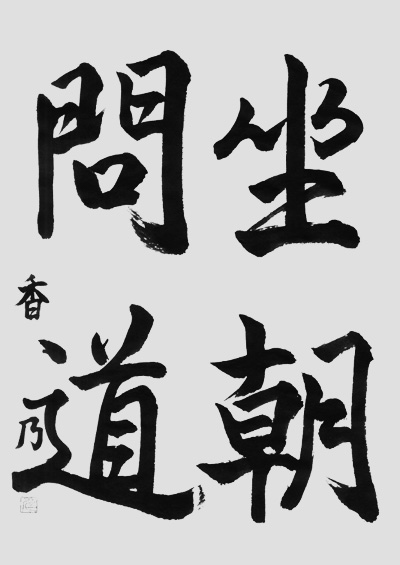 坐朝
問道
香乃